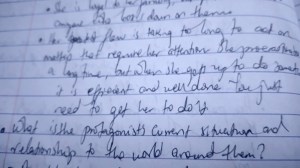 • She is loyal to her
world down on them
• Her flaw is taking to long to act on
matters that require her attention. She procrastinates
a long time, but when she gets up to do
it is efficient and well done. You just
need to get her to do it
• What is the protagonist's current situation and
relationship to the world around them?